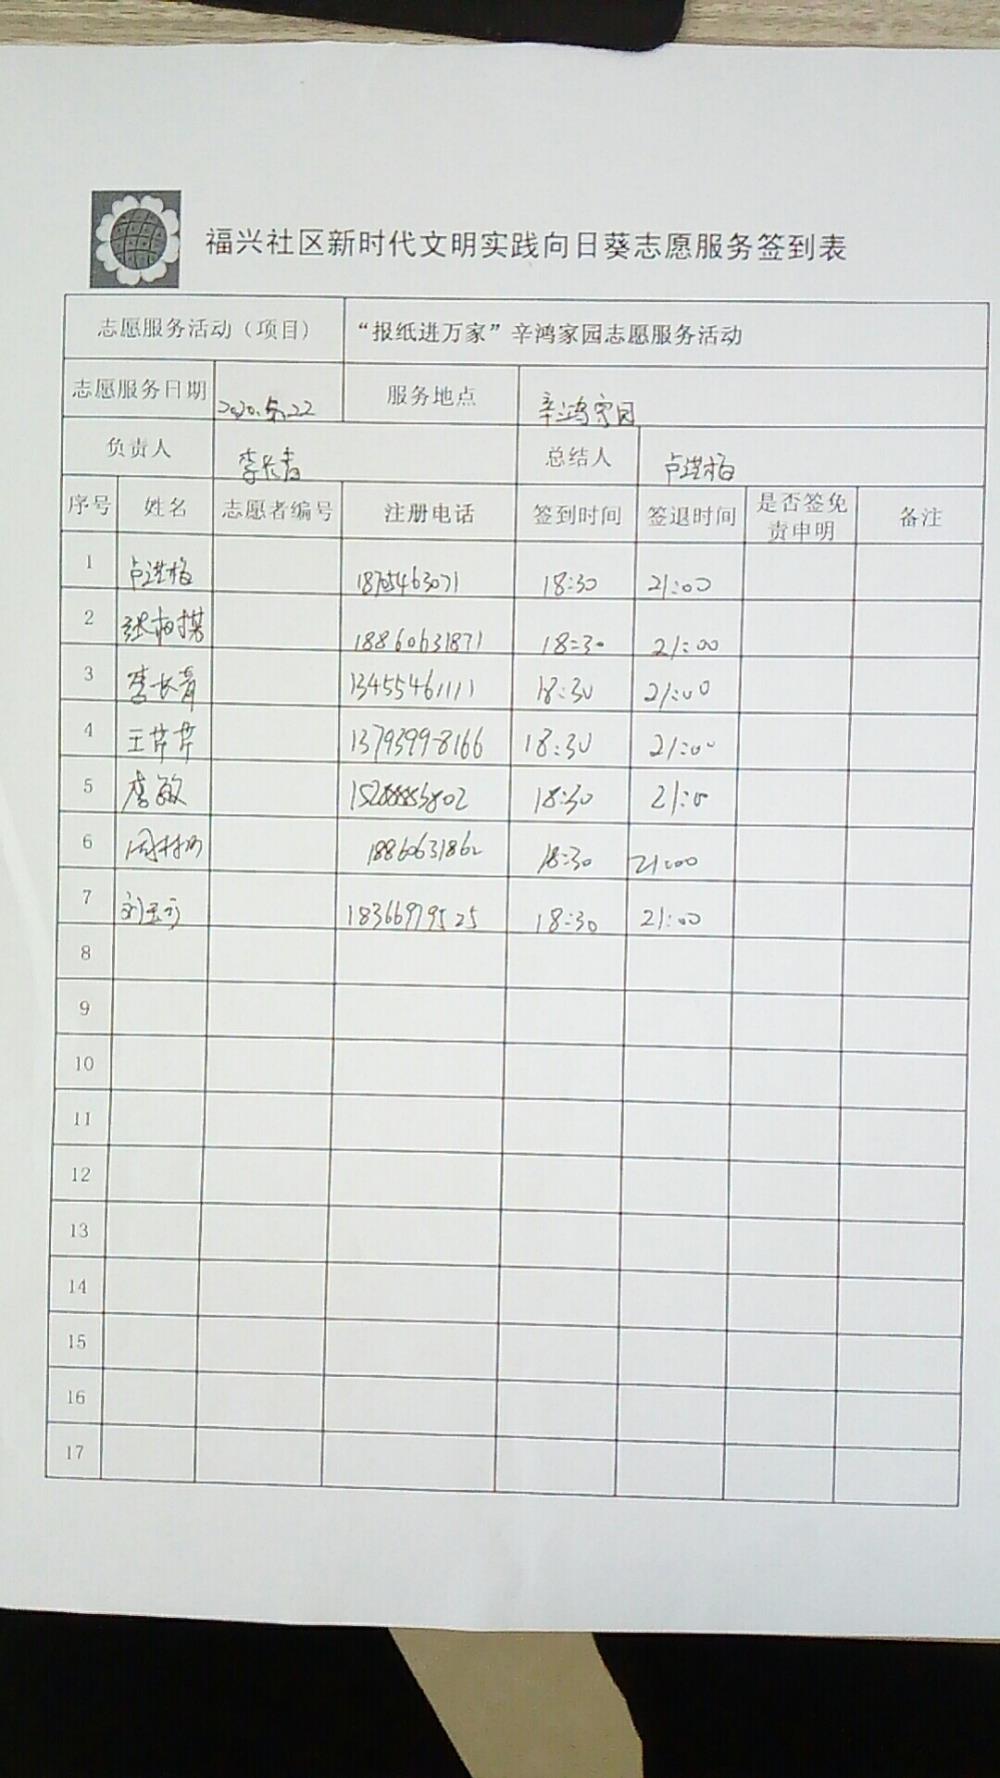 福兴社区新时代文明实践向日葵志愿服务签到表
志愿服务活动（项目） “报纸进万家”辛鸿家园志愿服务活动
志愿服务日期 2020.5.22 服务地点 辛鸿家园
负责人 李长青 总结人
序号 姓名 志愿者编号 注册电话 签到时间 签退时间 是否签免责申明 备注
1 18705463071 18:30 21:00
2 18860631871 18:30 21:00
3 李长青 13455461111 18:30 21:00
4 王芹芹 13793998166 18:30 21:00
5 李敏 15288883802 18:30 21:00
6 18860631862 18:30 21:00
7 18366979525 18:30 21:00
8
9
10
11
12
13
14
15
16
17